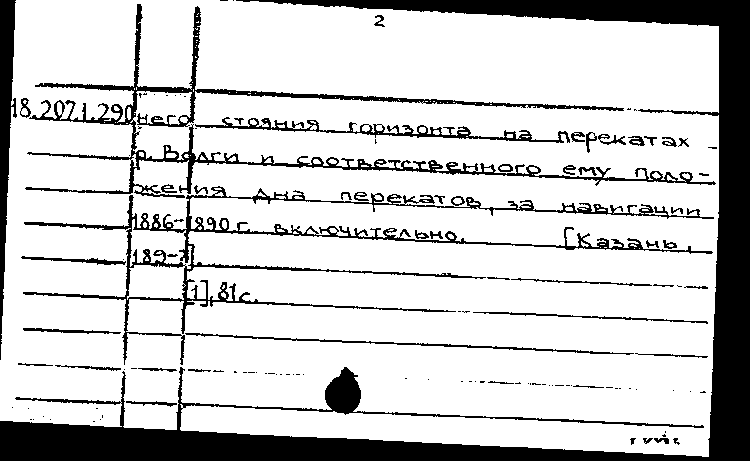 2
18.207.1.290 него стояния горизонта на перекатах
р. Волги и соответственного ему поло-
жения дна перекатов, за навигации
1886-1890 г. включительно. [Казань,
189-?].
[1], 81 с.